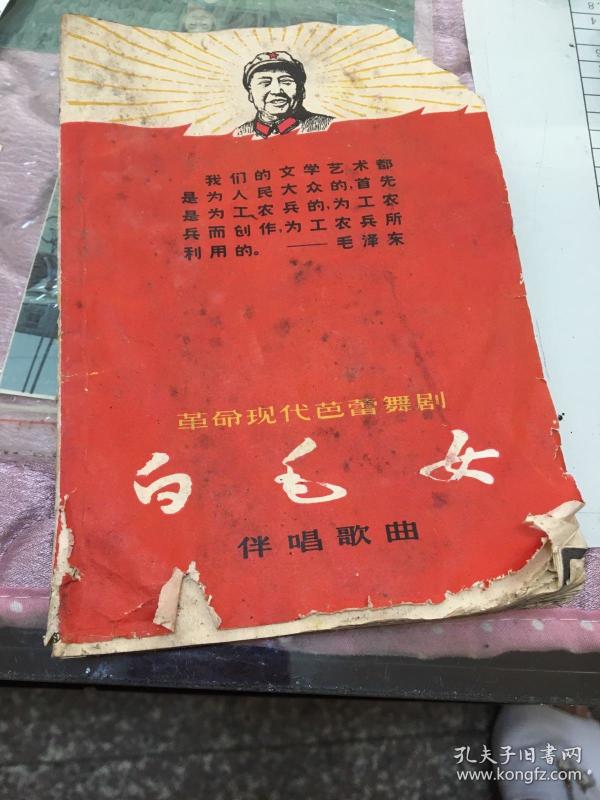 我们的文学艺术都
是为人民大众的，首先
是为工农兵的，为工农
兵而创作，为工农兵所
利用的。——毛泽东
革命现代芭蕾舞剧
白毛女
伴唱歌曲
孔夫子旧书网
www.kongfz.com